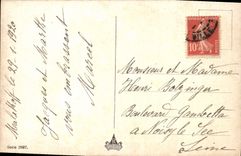 Malakoff le 29.1.1920
Jacques et Marthe
vous embrassent
Marcel
Monsieur et Madame
Henri
Boulevard Gambetta
à Noisy le Sec
Seine
10
Serie 2067.